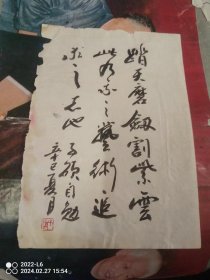 踏天磨劔割紫雲
此為我之藝術追
求之志也 子頎自勉
辛巳夏月
2022-L6
2024.02.27 15:54